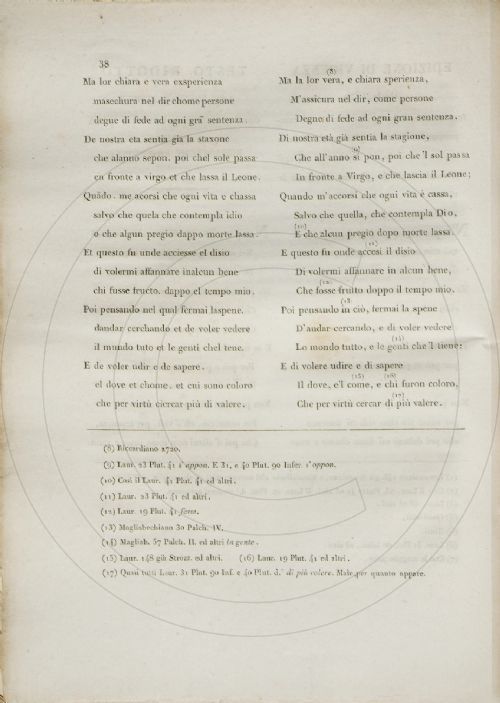 38
Ma lor chiara e vera exsperienza
masechura nel dir chome persone
degne di fede ad ogni grā sentenza.
De nostra eta sentia gia la staxone
che alanno sepon. poi chel sole passa
en fronte a virgo et che lassa il Leone.
Quādo. me acorsi che ogni vita e chassa
salvo che quela che contempla idio
o che algun pregio dappo morte lassa.
Et questo fu unde acciesse el disio
di volermi affannare inalcun bene
chi fusse fructo. dappo el tempo mio.
Poi pensando nel qual fermai laspene.
dandar cerchando et de voler vedere
il mundo tuto et le genti chel tene.
E de voler udir e de sapere.
el dove et chome. et cui sono coloro
che per virtù ciercar più di valere.
(8)
Ma la lor vera, e chiara sperienza,
M'assicura nel dir, come persone
Degne di fede ad ogni gran sentenza.
Di nostra età già sentia la stagione,
(9)
Che all'anno si pon, poi che 'l sol passa
In fronte a Virgo, e che lascia il Leone;
Quando m'accorsi che ogni vita è cassa,
Salvo che quella, che contempla Dio,
(10)
E che alcun pregio dopo morte lassa.
(11)
E questo fu onde accesi il disio
Di volermi affannare in alcun bene,
(12)
Che fosse frutto doppo il tempo mio.
(13)
Poi pensando in ciò, fermai la spene
D'andar cercando, e di voler vedere
(14)
Lo mondo tutto, e le genti che 'l tiene:
E di volere udire e di sapere
(15) (16)
Il dove, e'l come, e chi furon coloro,
(17)
Che per virtù cercar di più valere.
(8) Riccardiano 2720.
(9) Laur. 23 Plut. 41 s'appon. E 31, e 40 Plut. 90 Infer. s'oppon.
(10) Così il Laur. 41 Plut. 41 ed altri.
(11) Laur. 23 Plut. 41 ed altri.
(12) Laur. 19 Plut. 41
(13) Magliabechiano 30 Palch. IV.
(14) Magliab. 57 Palch. II. ed altri la gente.
(15) Laur. 148 già Strozz. ed altri. (16) Laur. 19 Plut. 41 ed altri.
(17) Quasi tutti Laur. 31 Plut. 90 Inf. e 40 Plut. d.° di più volere. Male per quanto appare.